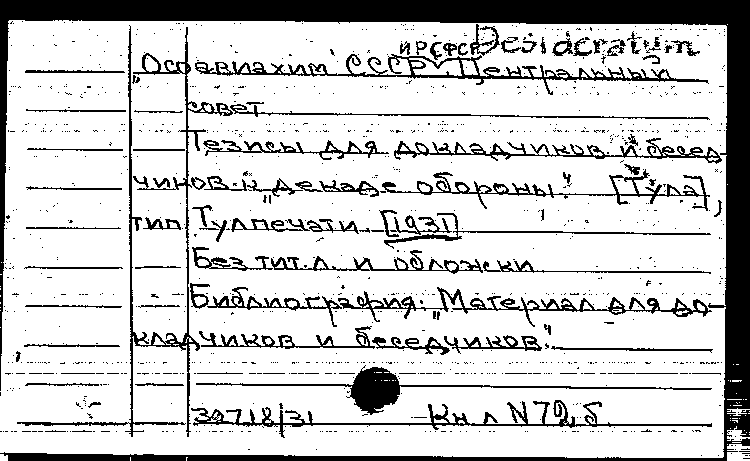 Desideratum
и РСФСР
„Осоавиахим" СССР. Центральный
совет.
Тезисы для докладчиков и бесед-
чиков к „декаде обороны." [Тула],
тип. Тулпечати. [1931]
Без тит.л. и обложки
Библиография: „Материал для до-
кладчиков и беседчиков."
Кн л N 79, б.